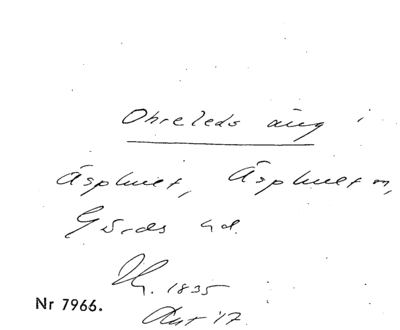 Ohreleds äng i
Äsphult, Äsphult sn,
Gärds hd.
1835
Nr 7966.
Akt 17